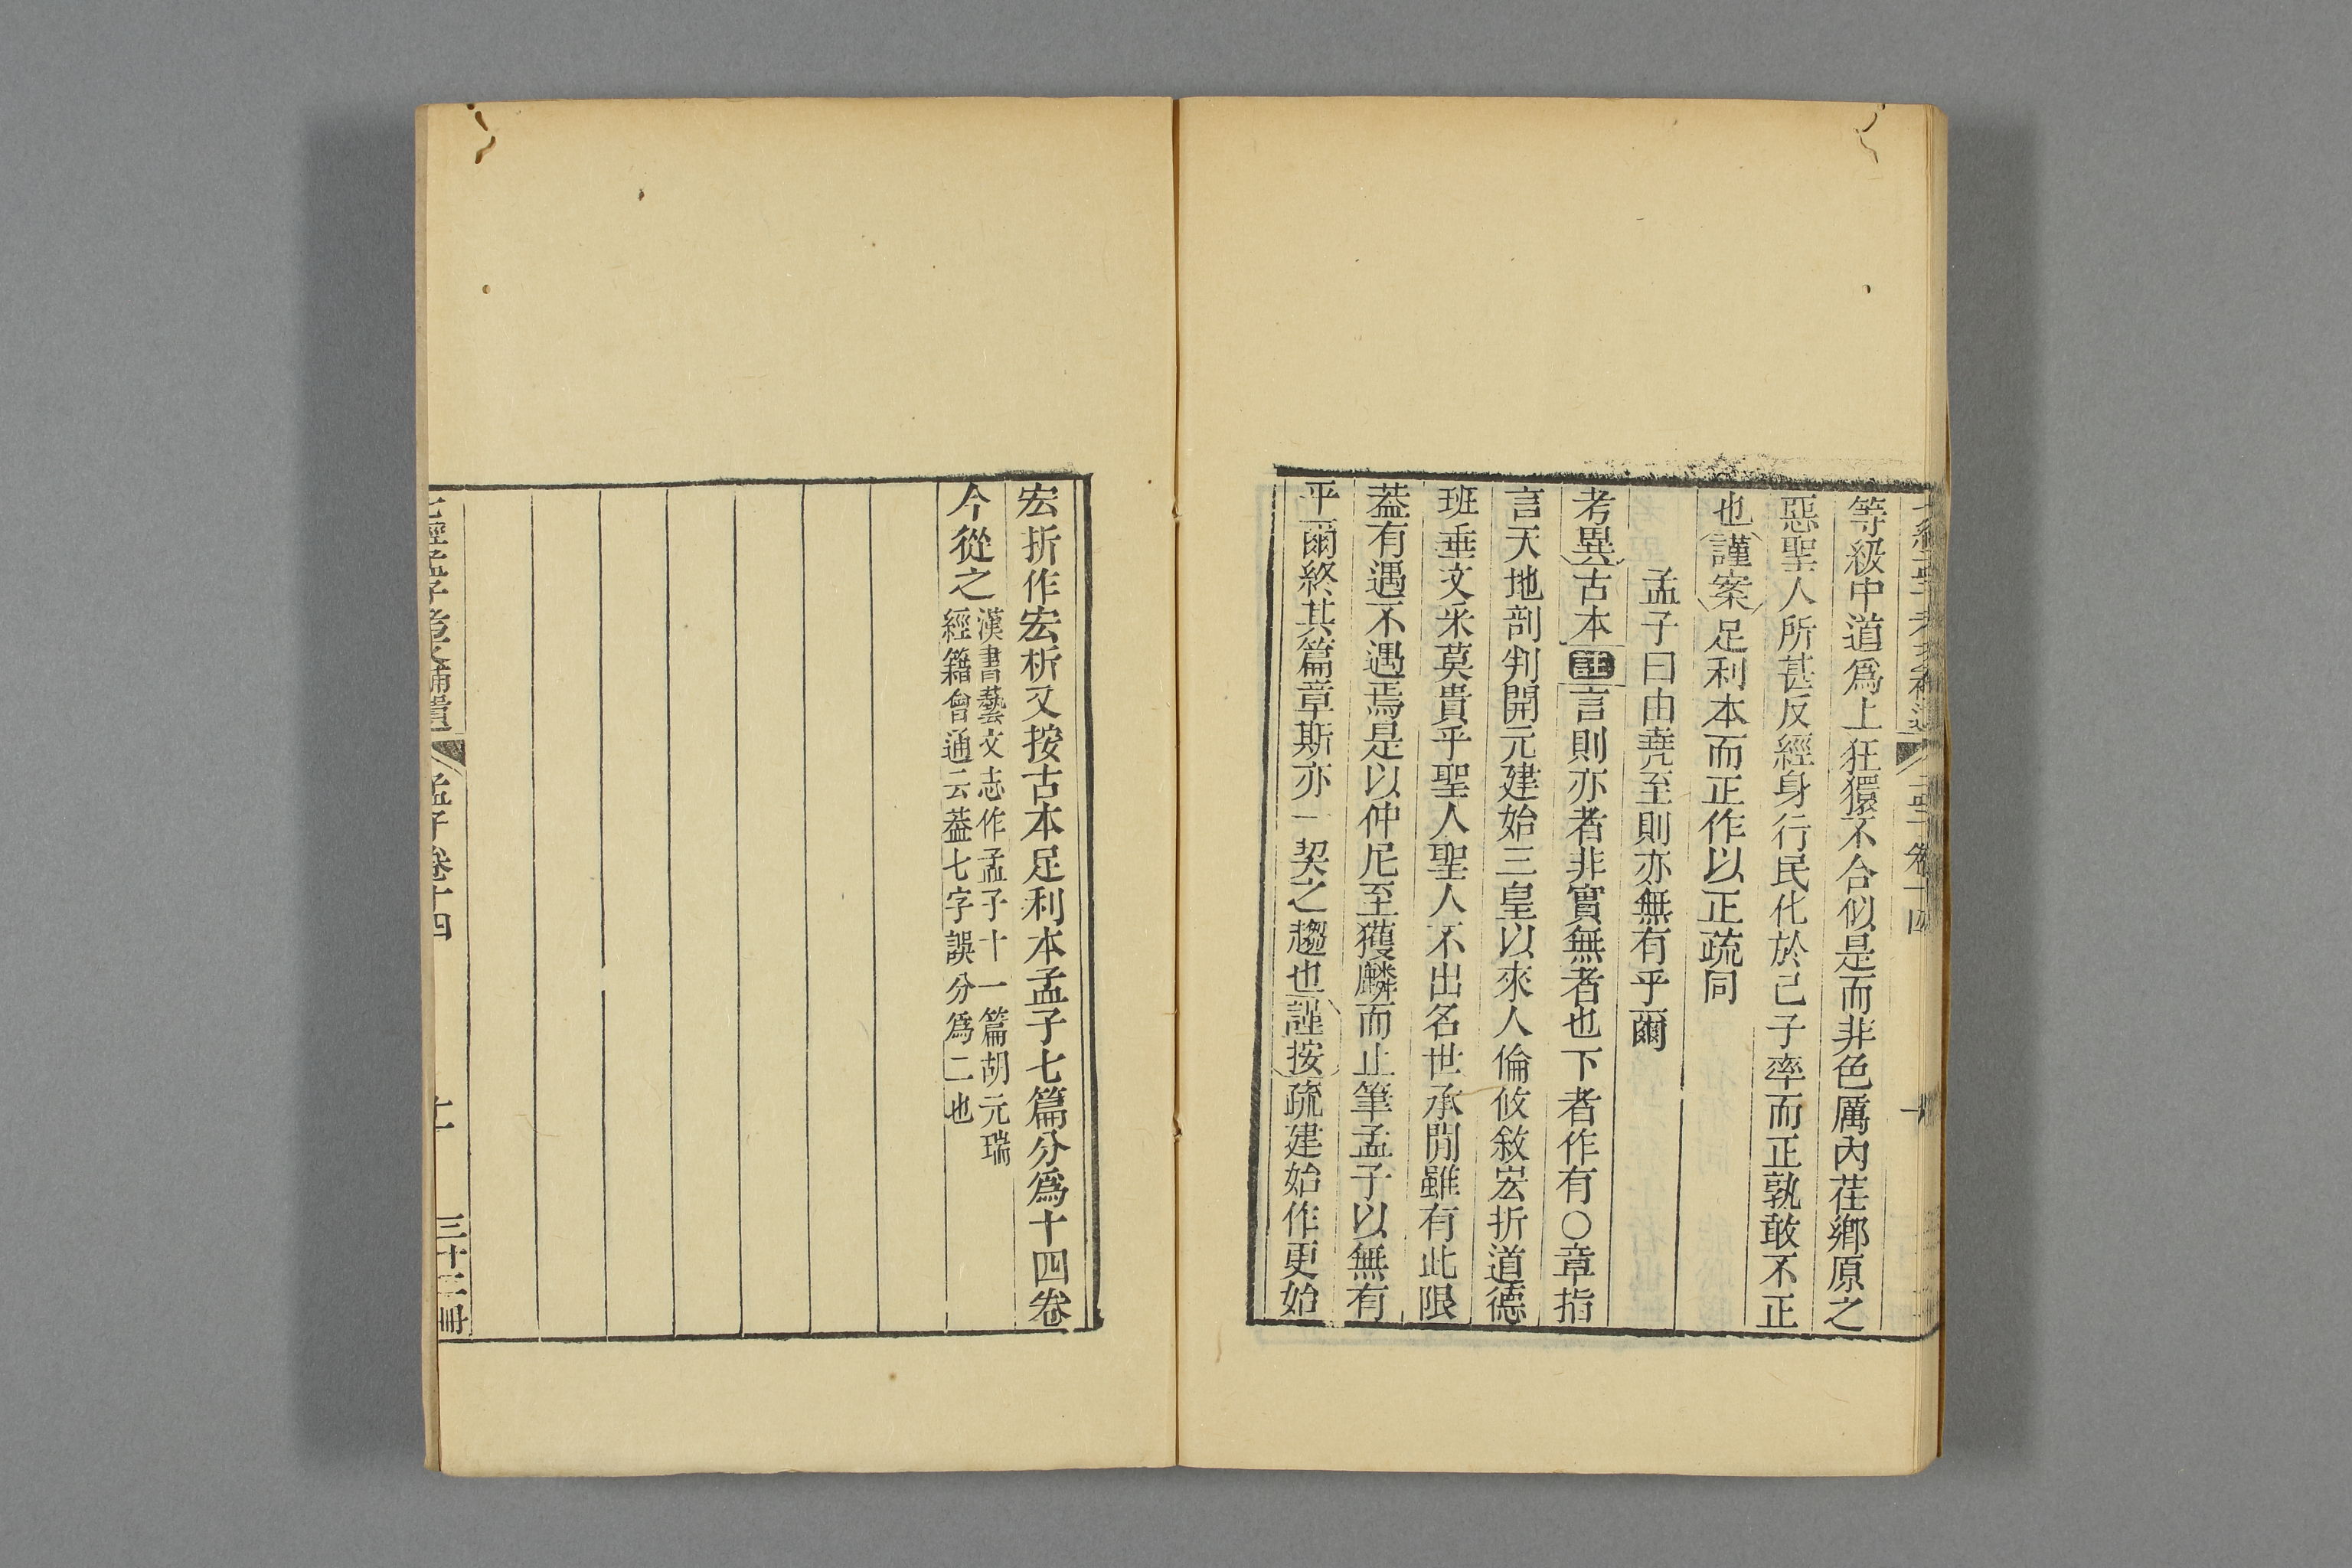 等級中道爲上狂獧不合似是而非色厲內荏鄉原之
惡聖人所甚反經身行民化於己子率而正孰敢不正
也謹案足利本而正作以正疏同
孟子曰由堯至則亦無有乎爾
考異古本註言則亦者非實無者也下者作有○章指
言天地剖判開元建始三皇以來人倫攸敘宏折道德
班垂文采莫貴乎聖人聖人不出名世承閒雖有此限
葢有遇不遇焉是以仲尼至獲麟而止筆孟子以無有
乎爾終其篇章斯亦一契之趨也謹按疏建始作更始
宏折作宏析又按古本足利本孟子七篇分爲十四卷
今從之
漢書藝文志作孟子十一篇胡元瑞
經籍會通云葢七字誤分爲二也
七經孟子考文補遺 孟子卷十四 十一 三十二冊